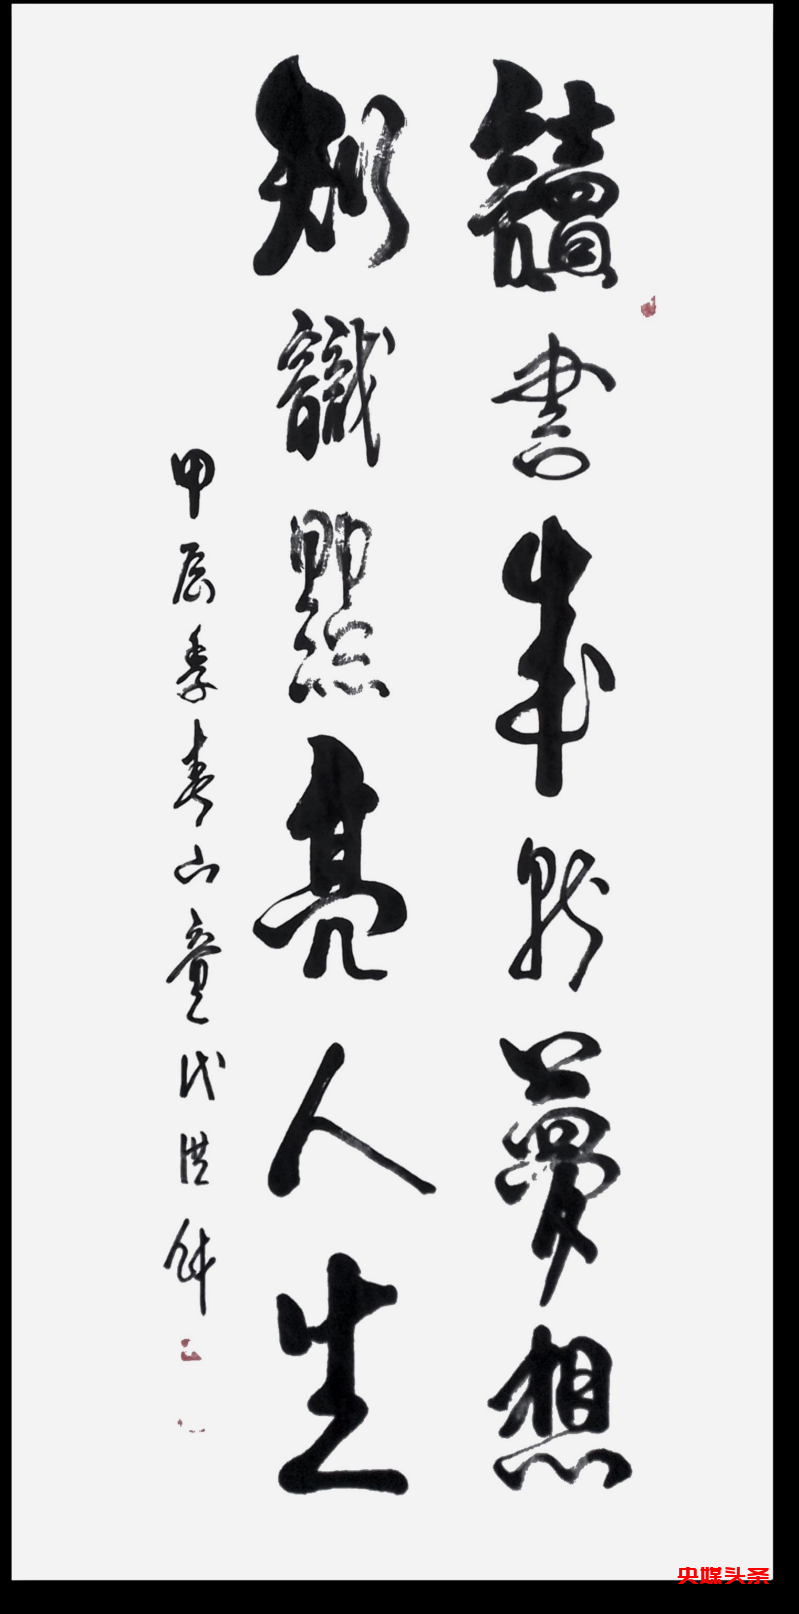 讀書成就夢想
知識點亮人生
甲辰季春山童代洪
央媒头条